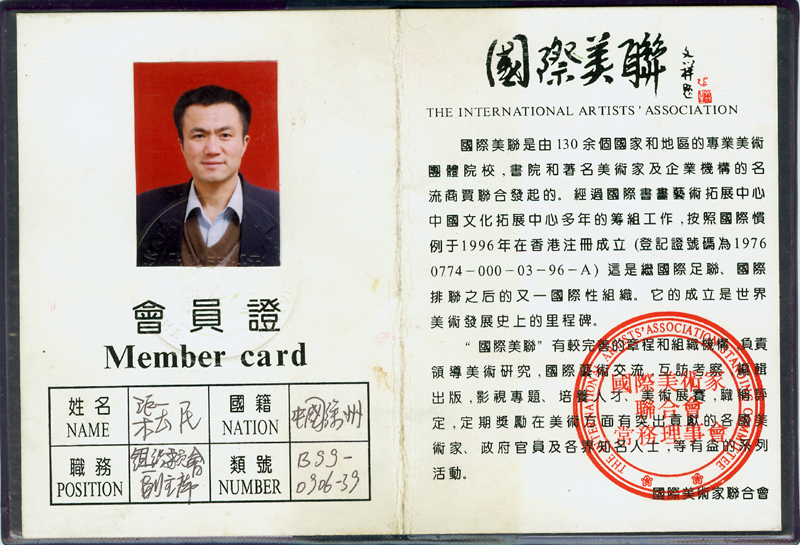 會員證
Member card
姓名
NAME
張 民
國籍
NATION
中國徐州
職務
POSITION
組織委員會
副主席
類號
NUMBER
0906-39
國際美聯
THE INTERNATIONAL ARTISTS' ASSOCIATION
國際美聯是由130余個國家和地區的專業美術
團體院校，書院和著名美術家及企業機構的名
流商賈聯合發起的。經過國際書畫藝術拓展中心
中國文化拓展中心多年的籌組工作，按照國際慣
例于1996年在香港注冊成立（登記證號碼為1976
0774-000-03-96-A）這是繼國際足聯、國際
排聯之后的又一國際性組織。它的成立是世界
美術發展史上的里程碑。
“國際美聯”有較完善的章程和組織機構，負責
領導美術研究，國際藝術交流，互訪考察，編輯
出版，影視專題、培養人才、美術展賽，職稱評
定，定期獎勵在美術方面有突出貢獻的各國美
術家、政府官員及各界知名人士，等有益的系列
活動。
國際美術家聯合會
THE INTERNATIONAL ARTISTS' ASSOCIATION STANDING COMMITTEE
國際美術家
聯合會
常務理事會